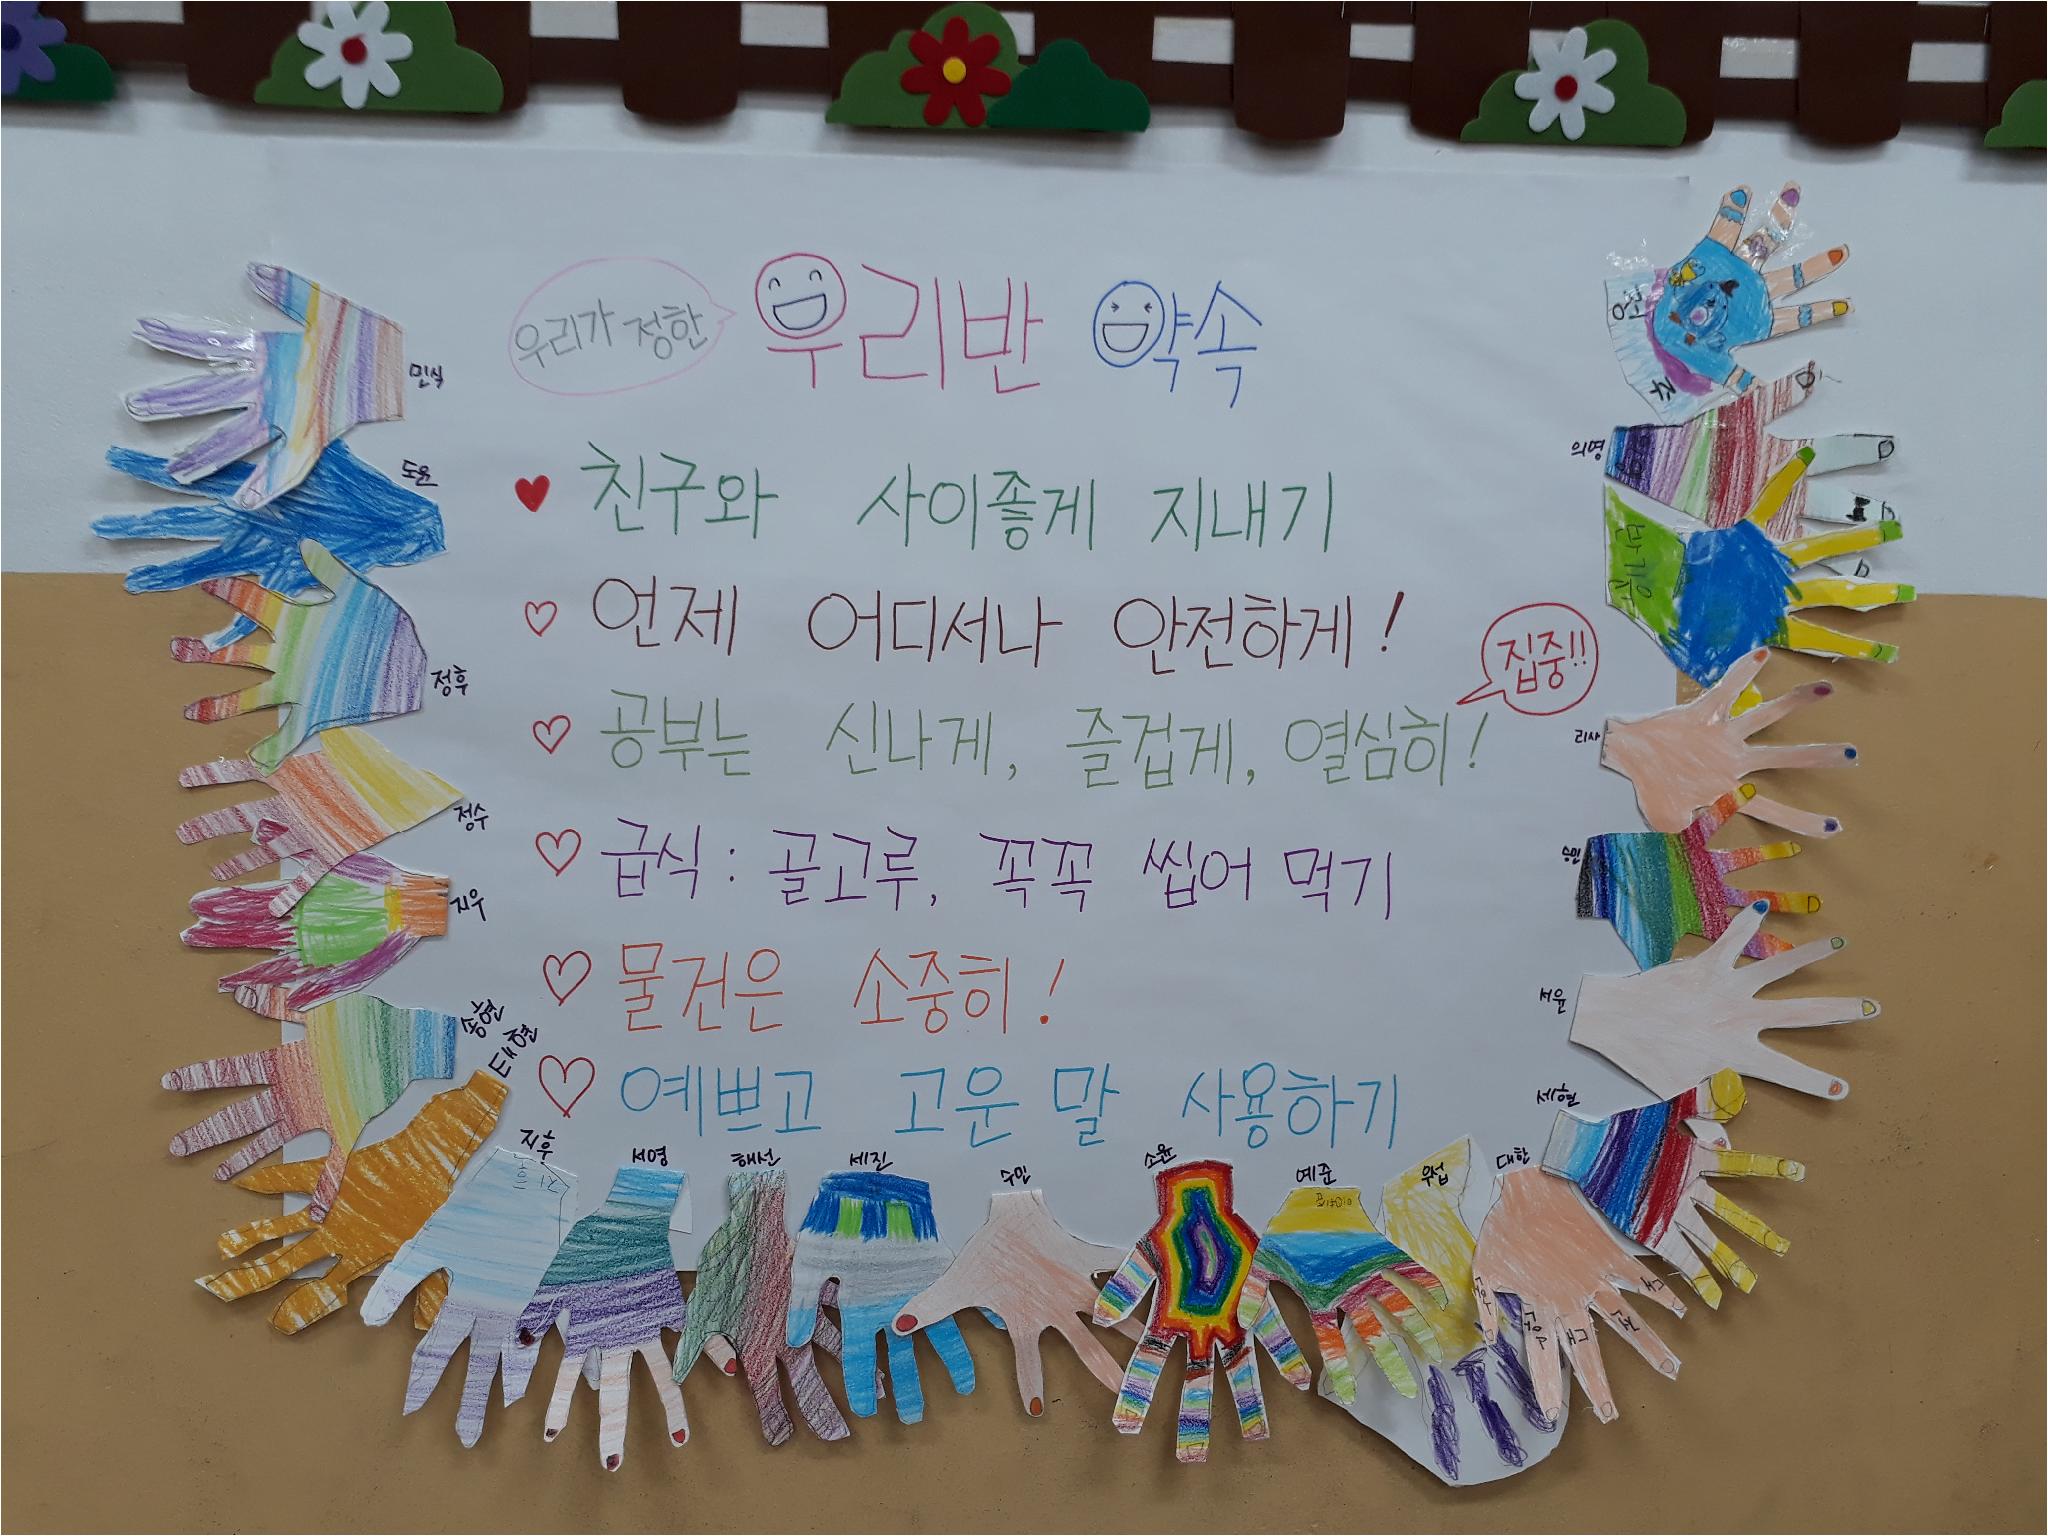 우리가 정한 우리반 약속
친구와 사이좋게 지내기
언제 어디서나 안전하게!
집중!!
공부는 신나게, 즐겁게, 열심히!
급식: 골고루, 꼭꼭 씹어 먹기
물건은 소중히!
예쁘고 고운 말 사용하기
민식
도윤
정후
정수
지우
송현
태현
지후
서영
해선
세진
수민
소윤
예준
우섭
대한
세현
서윤
승민
리사
의명